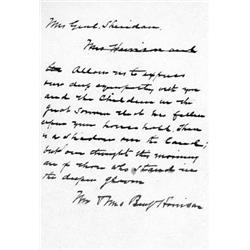 Mrs Genl. Sheridan.
Mrs Harrison and
Allow us to express
our deep sympathy with you
and the children in the
great sorrow that has fallen
upon your household. There
is a shadow over the land;
but our thought this morning
is of those who stand in
the deeper gloom
Mr & Mrs Benj Harrison